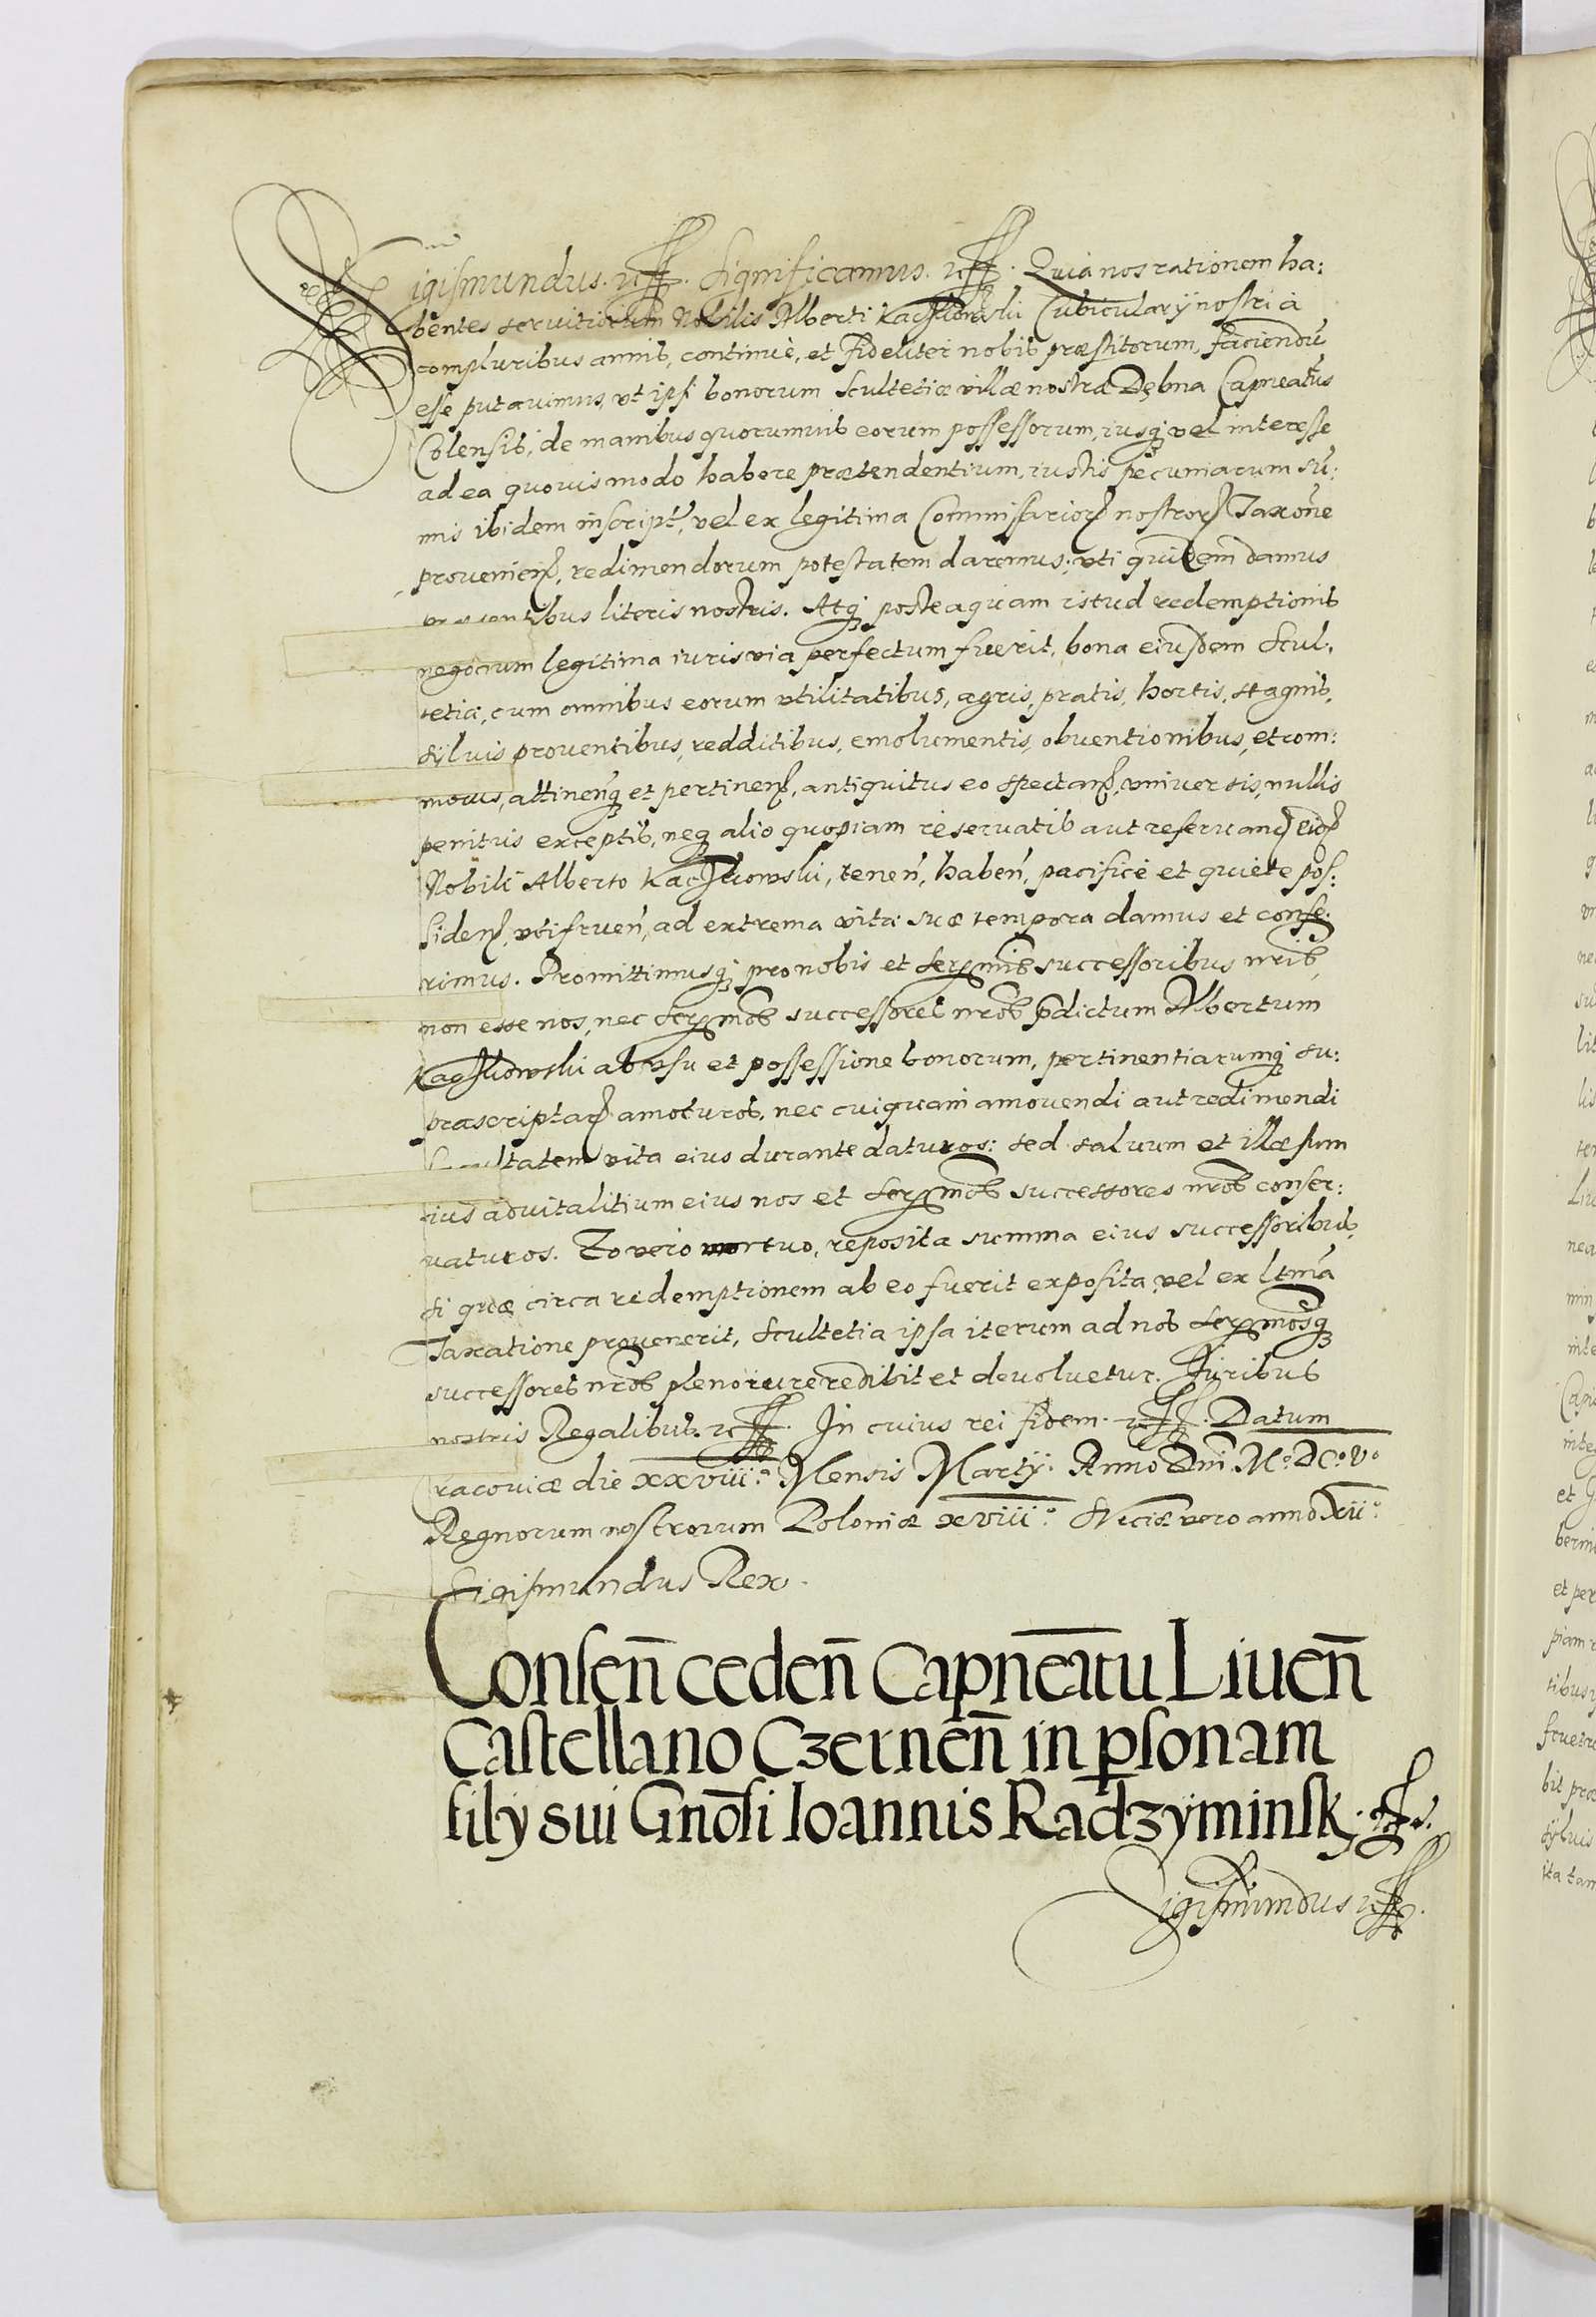 Sigismundus. etc. Significamus. etc. Quia nos rationem ha:
bentes servitiorum Nobilis Alberti Kaczkowski Cubicularÿ nostri à
compluribus annis, continuè, et fideliter nobis præstitorum, faciendū
esse putavimus, vt ipsi bonorum scultetiæ villæ nostræ Dębna Capneatus
Colensis, de manibus quorumvis eorum possessorum, iusq; vel interesse
ad ea quovis modo habere prætendentium, iustis pecuniarum sū:
mis ibidem inscript, vel ex legitima Commissarior nostror Taxōne
provenien, redimendorum potestatem daremus; vti quidem damus
præsentibus literis nostris. Atq; posteaquam istud redemptionis
negocium legitima iuris via perfectum fuerit, bona eiusdem Scul:
tetiæ, cum omnibus eorum vtilitatibus, agris, pratis, hortis, stagnis,
sÿluis proventibus, redditibus, emolumentis, obventionibus, et com:
modis, attinenq; et pertinen, antiquitus eo spectan, vniversis, nullis
penitus exceptis, neq; alio quopiam reservatis aut reservan,
Nobili Alberto Kaczkowski, tenen, haben, pacificè et quietè pos:
siden, vtifruen, ad extrema vitæ suæ tempora damus et confe:
rimus. Promittimusq; pro nobis et Sermis successoribus nris,
non esse nos, nec Sermos successores nros pdictum Albertum
Kaczkowski ab vsu et possessione bonorum, pertinentiarumq; su:
prascriptar amoturos, nec cuiquam amovendi aut redimendi
facultatem vita eius durante daturos: sed salvum et illæsum
ius advitalitium eius nos et Sermos successores nros conser:
vaturos. Eo vero mortuo, reposita summa eius successoribus,
si quæ circa redemptionem ab eo fuerit exposita, vel ex ltma
Taxatione provenerit, Scultetia ipsa iterum ad nos Sermosq;
successores nros pleno iure redibit et devolvetur. Iuribus
nostris Regalibus. etc. In cuius rei fidem. etc. Datum
Cracoviæ die XXVIII.ª Mensis Martÿ. Anno Dni. Mº. DCº. Vº
Regnorum nostrorum Poloniæ XVIIIº. Sveciæ vero anno XIIº.
Sigismundus Rex.
Consen̄ ceden̄ Capnēatu Liuen̄
Castellano Czernēn̄ in psonam
filÿ sui Gnōsi Ioannis Radzÿminsk. etc.
Sigismundus etc.